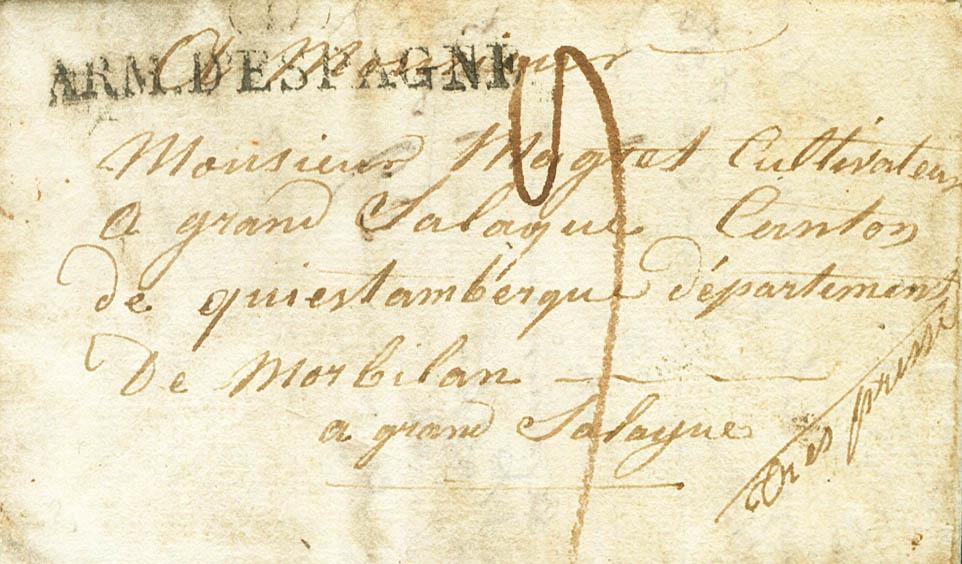 ARM. D'ESPAGNE
A Monsieur
Monsieur Magret Cultivateur
a grand Salague Canton
de quiestambergue département
De Morbilan
a grand Salague
tres pressé